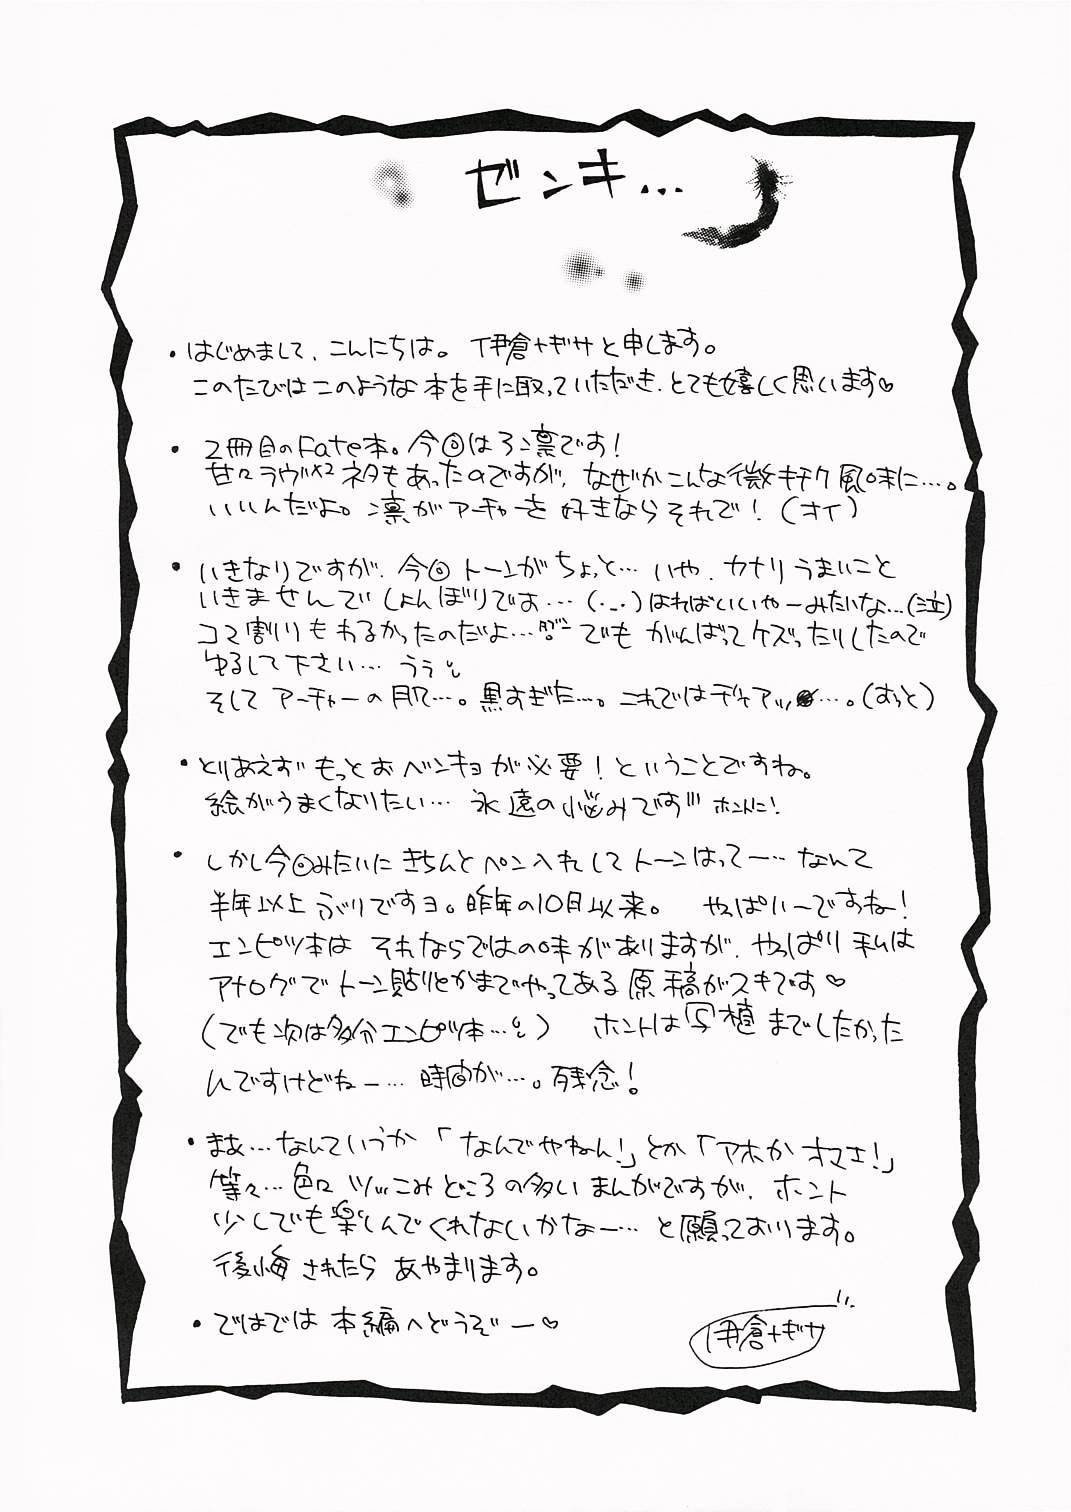 ゼンキ...
・はじめまして、こんにちは。伊倉ナギサと申します。
このたびはこのような本を手に取っていただき、とても嬉しく思います♡
・2冊目のFate本。今回は弓凛です!
甘々ラヴ×2ネタもあったのですが、なぜかこんな微キチク風味に…。
いいんだよ。凛がアーチャーを好きならそれで!(オイ)
・いきなりですが、今回トーンがちょっと…いや、カナリうまいこと
いきませんでしょんぼりです…(._.)はればいいやーみたいな…(泣)
コマ割りもわるかったのだよ…でもがんばってケズったりしたので
ゆるして下さい…うぅ
そしてアーチャーの肌…。黒すぎた…。これではディアッ●…。(おっと)
・とりあえずもっとおベンキョが必要!ということですね。
絵がうまくなりたい…永遠の悩みです ホントに!
・しかし今回みたいにきちんとペン入れしてトーンはってー…なんて
半年以上ぶりですヨ。昨年の10月以来。 やっぱいーですね!
エンピツ本はそれならではの味がありますが、やっぱり私は
アナログでトーン貼りとかまでやってある原稿がスキです♡
(でも次は多分エンピツ本…) ホントは写植までしたかった
んですけどねー…時間が…。残念!
・まぁ…なんていうか「なんでやねん!」とか「アホかオマエ!」
等々…色々ツッこみどころの多いまんがですが、ホント
少しでも楽しんでくれないかなー…と願っております。
後悔されたらあやまります。
・ではでは本編へどうぞー♡
伊倉ナギサ